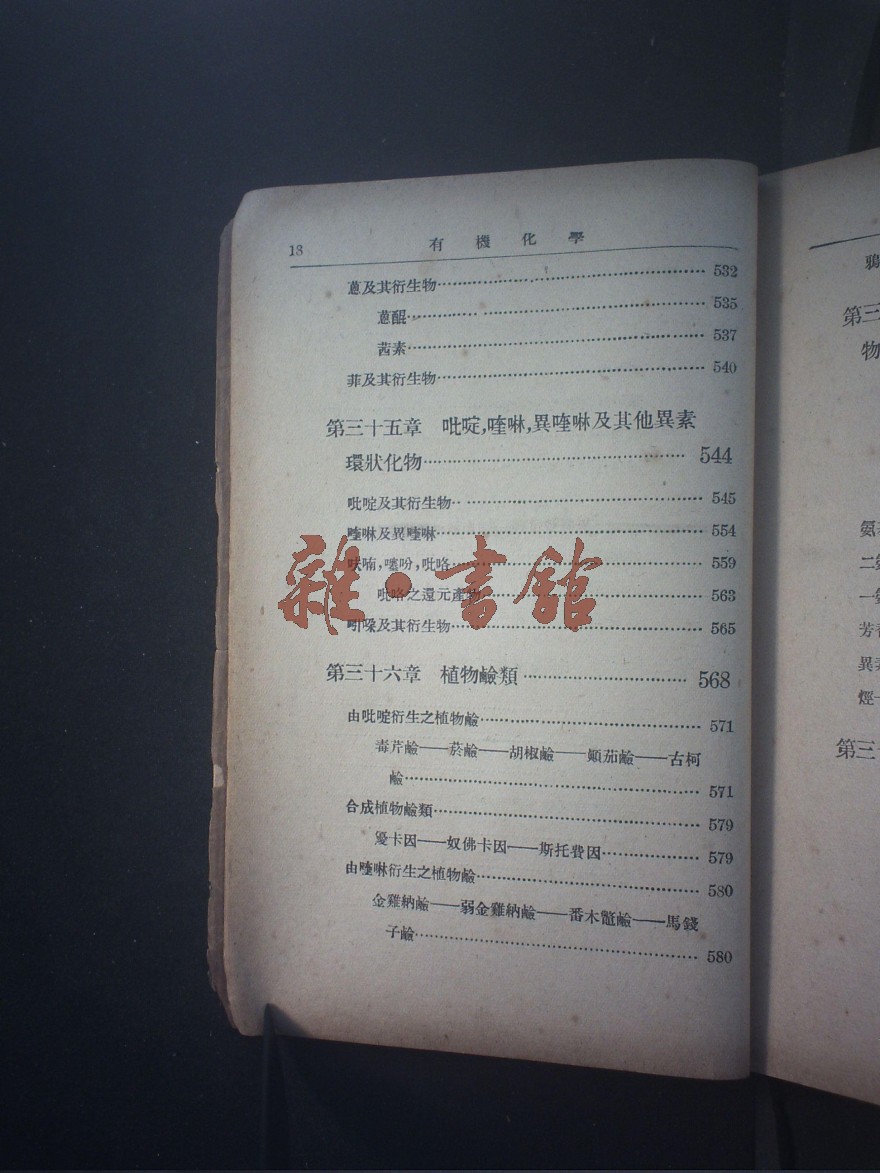 18 有機化學
蒽及其衍生物 532
蒽醌 535
茜素 537
菲及其衍生物 540
第三十五章 吡啶,喹啉,異喹啉及其他異素
環狀化物 544
吡啶及其衍生物 545
喹啉及異喹啉 554
呋喃,噻吩,吡咯 559
吡咯之還元產物 563
吲哚及其衍生物 565
雜·書館
第三十六章 植物鹼類 568
由吡啶衍生之植物鹼 571
毒芹鹼——菸鹼——胡椒鹼——顚茄鹼——古柯
鹼 571
合成植物鹼類 579
優卡因——奴佛卡因——斯托費因 579
由喹啉衍生之植物鹼 580
金雞納鹼——弱金雞納鹼——番木鼈鹼——馬錢
子鹼 580
第三
物
氨
二
一
芳
異
烴
第三